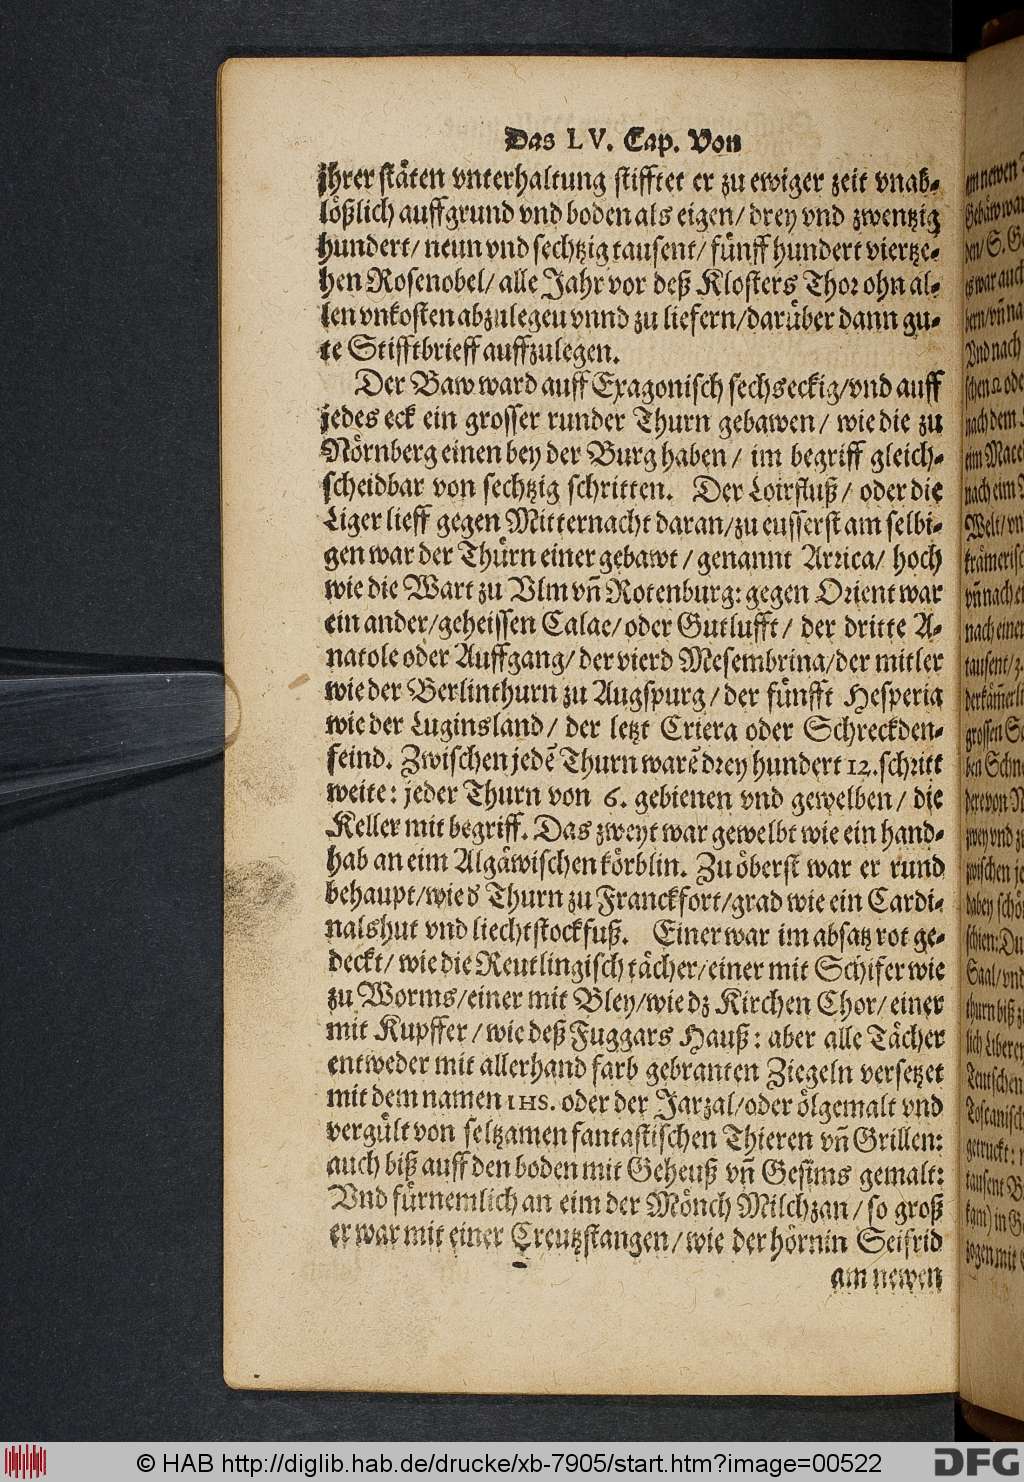 Das LV. Cap. Von
ihrer stäten vnterhaltung stifftet er zu ewiger zeit vnab-
lößlich auff grund vnd boden als eigen/ drey vnd zwentzig
hundert/ neun vnd sechtzig tausent/ fünff hundert viertze-
hen Rosenobel/ alle Jahr vor deß Klosters Thor ohn al-
len vnkosten abzulegeu vnnd zu liefern/ darüber dann gu-
te Stifftbrieff auffzulegen.
Der Baw ward auff Exagonisch sechseckig/ vnd auff
jedes eck ein grosser runder Thurn gebawen/ wie die zu
Nörnberg einen bey der Burg haben/ im begriff gleich-
scheidbar von sechtzig schritten. Der Loirfluß/ oder die
Liger lieff gegen Mitternacht daran/ zu eusserst am selbi-
gen war der Thürn einer gebawt/ genannt Arrica/ hoch
wie die Wart zu Vlm vñ Rotenburg: gegen Orient war
ein ander/ geheissen Calae/ oder Gutlufft/ der dritte A-
natole oder Auffgang/ der vierd Mesembrina/ der mitler
wie der Berlinthurn zu Augspurg/ der fünfft Hesperia
wie der Luginsland/ der letzt Criera oder Schreckden-
feind. Zwischen jedẽ Thurn warẽ drey hundert 12. schritt
weite: jeder Thurn von 6. gebienen vnd gewelben/ die
Keller mit begriff. Das zweyt war gewelbt wie ein hand-
hab an eim Algäwischen körblin. Zu öberst war er rund
behaupt/ wie d Thurn zu Franckfort/ grad wie ein Cardi-
nalshut vnd liechtstockfuß. Einer war im absatz rot ge-
deckt/ wie die Reutlingisch tächer/ einer mit Schifer wie
zu Worms/ einer mit Bley/ wie dz Kirchen Chor/ einer
mit Kupffer/ wie deß Fuggars Hauß: aber alle Tächer
entweder mit allerhand farb gebranten Ziegeln versetzet
mit dem namen IHS. oder der Jarzal/ oder ölgemalt vnd
vergült von seltzamen fantastischen Thieren vñ Grillen:
auch biß auff den boden mit Geheuß vñ Gesims gemalt:
Vnd fürnemlich an eim der Mönch Milchzan/ so groß
er war mit einer Creutzstangen/ wie der hörnin Seifrid
am newen
© HAB http://diglib.hab.de/drucke/xb-7905/start.htm?image=00522
DFG